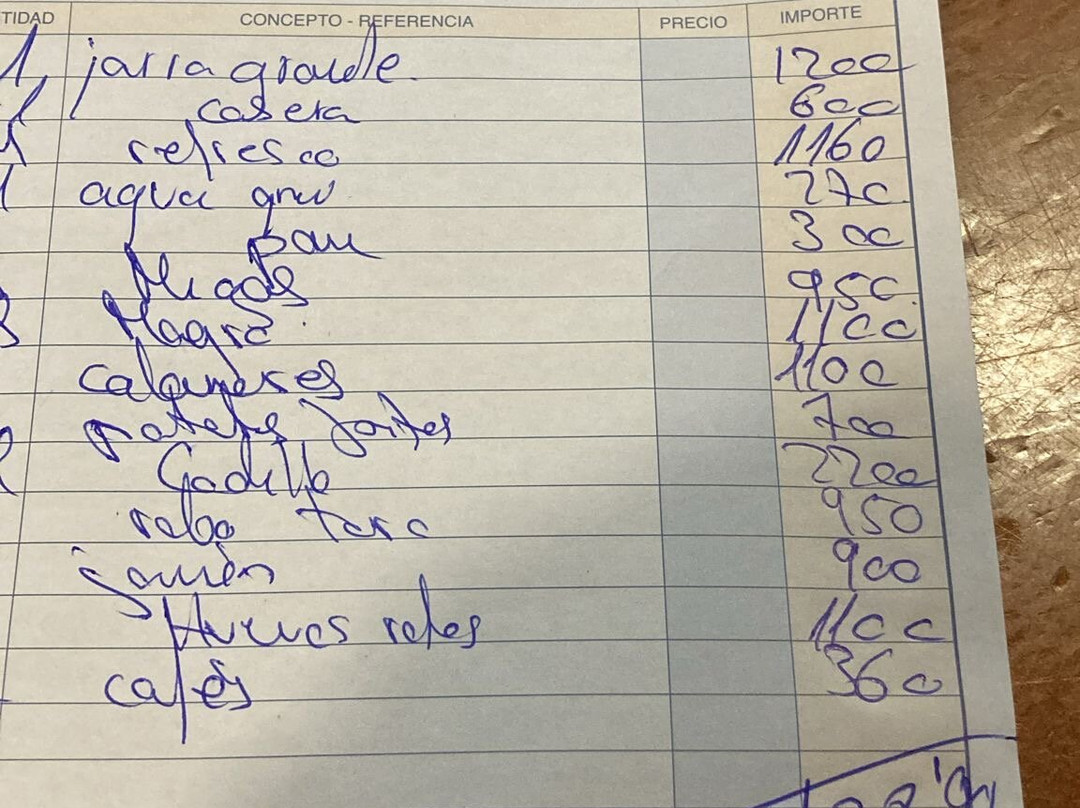 TIDAD CONCEPTO - REFERENCIA PRECIO IMPORTE
1 jarra grande 1200
casera 600
refresco 1160
1 agua gran 270
pan 300
Migas 950
3 Magra 1100
calamares 1100
patatas 700
2 Gadilla 2200
rabo toro 950
jamón 900
Huevos rotos 1100
cafés 360